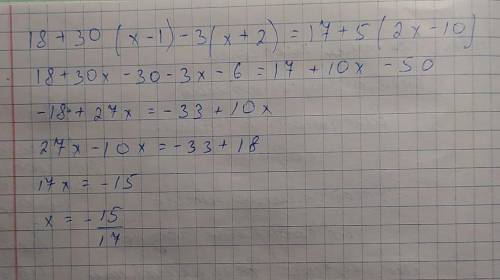 18 + 30 (x - 1) - 3 (x + 2) = 17 + 5 (2x - 10)
18 + 30x - 30 - 3x - 6 = 17 + 10x - 50
-18 + 27x = -33 + 10x
27x - 10x = -33 + 18
17x = -15
x = -15/17